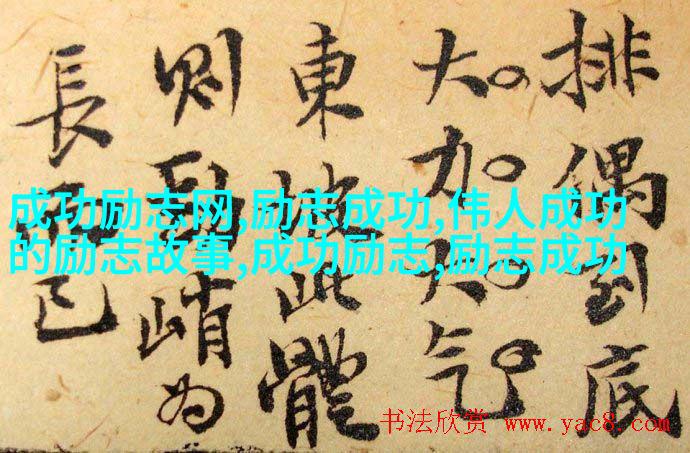 排偶到底
大力大气
東坡此體
則峭為
長已
成功励志网,励志成功,伟人成功
的励志故事,成功励志,励志成功
书法欣赏 www.yac8.com